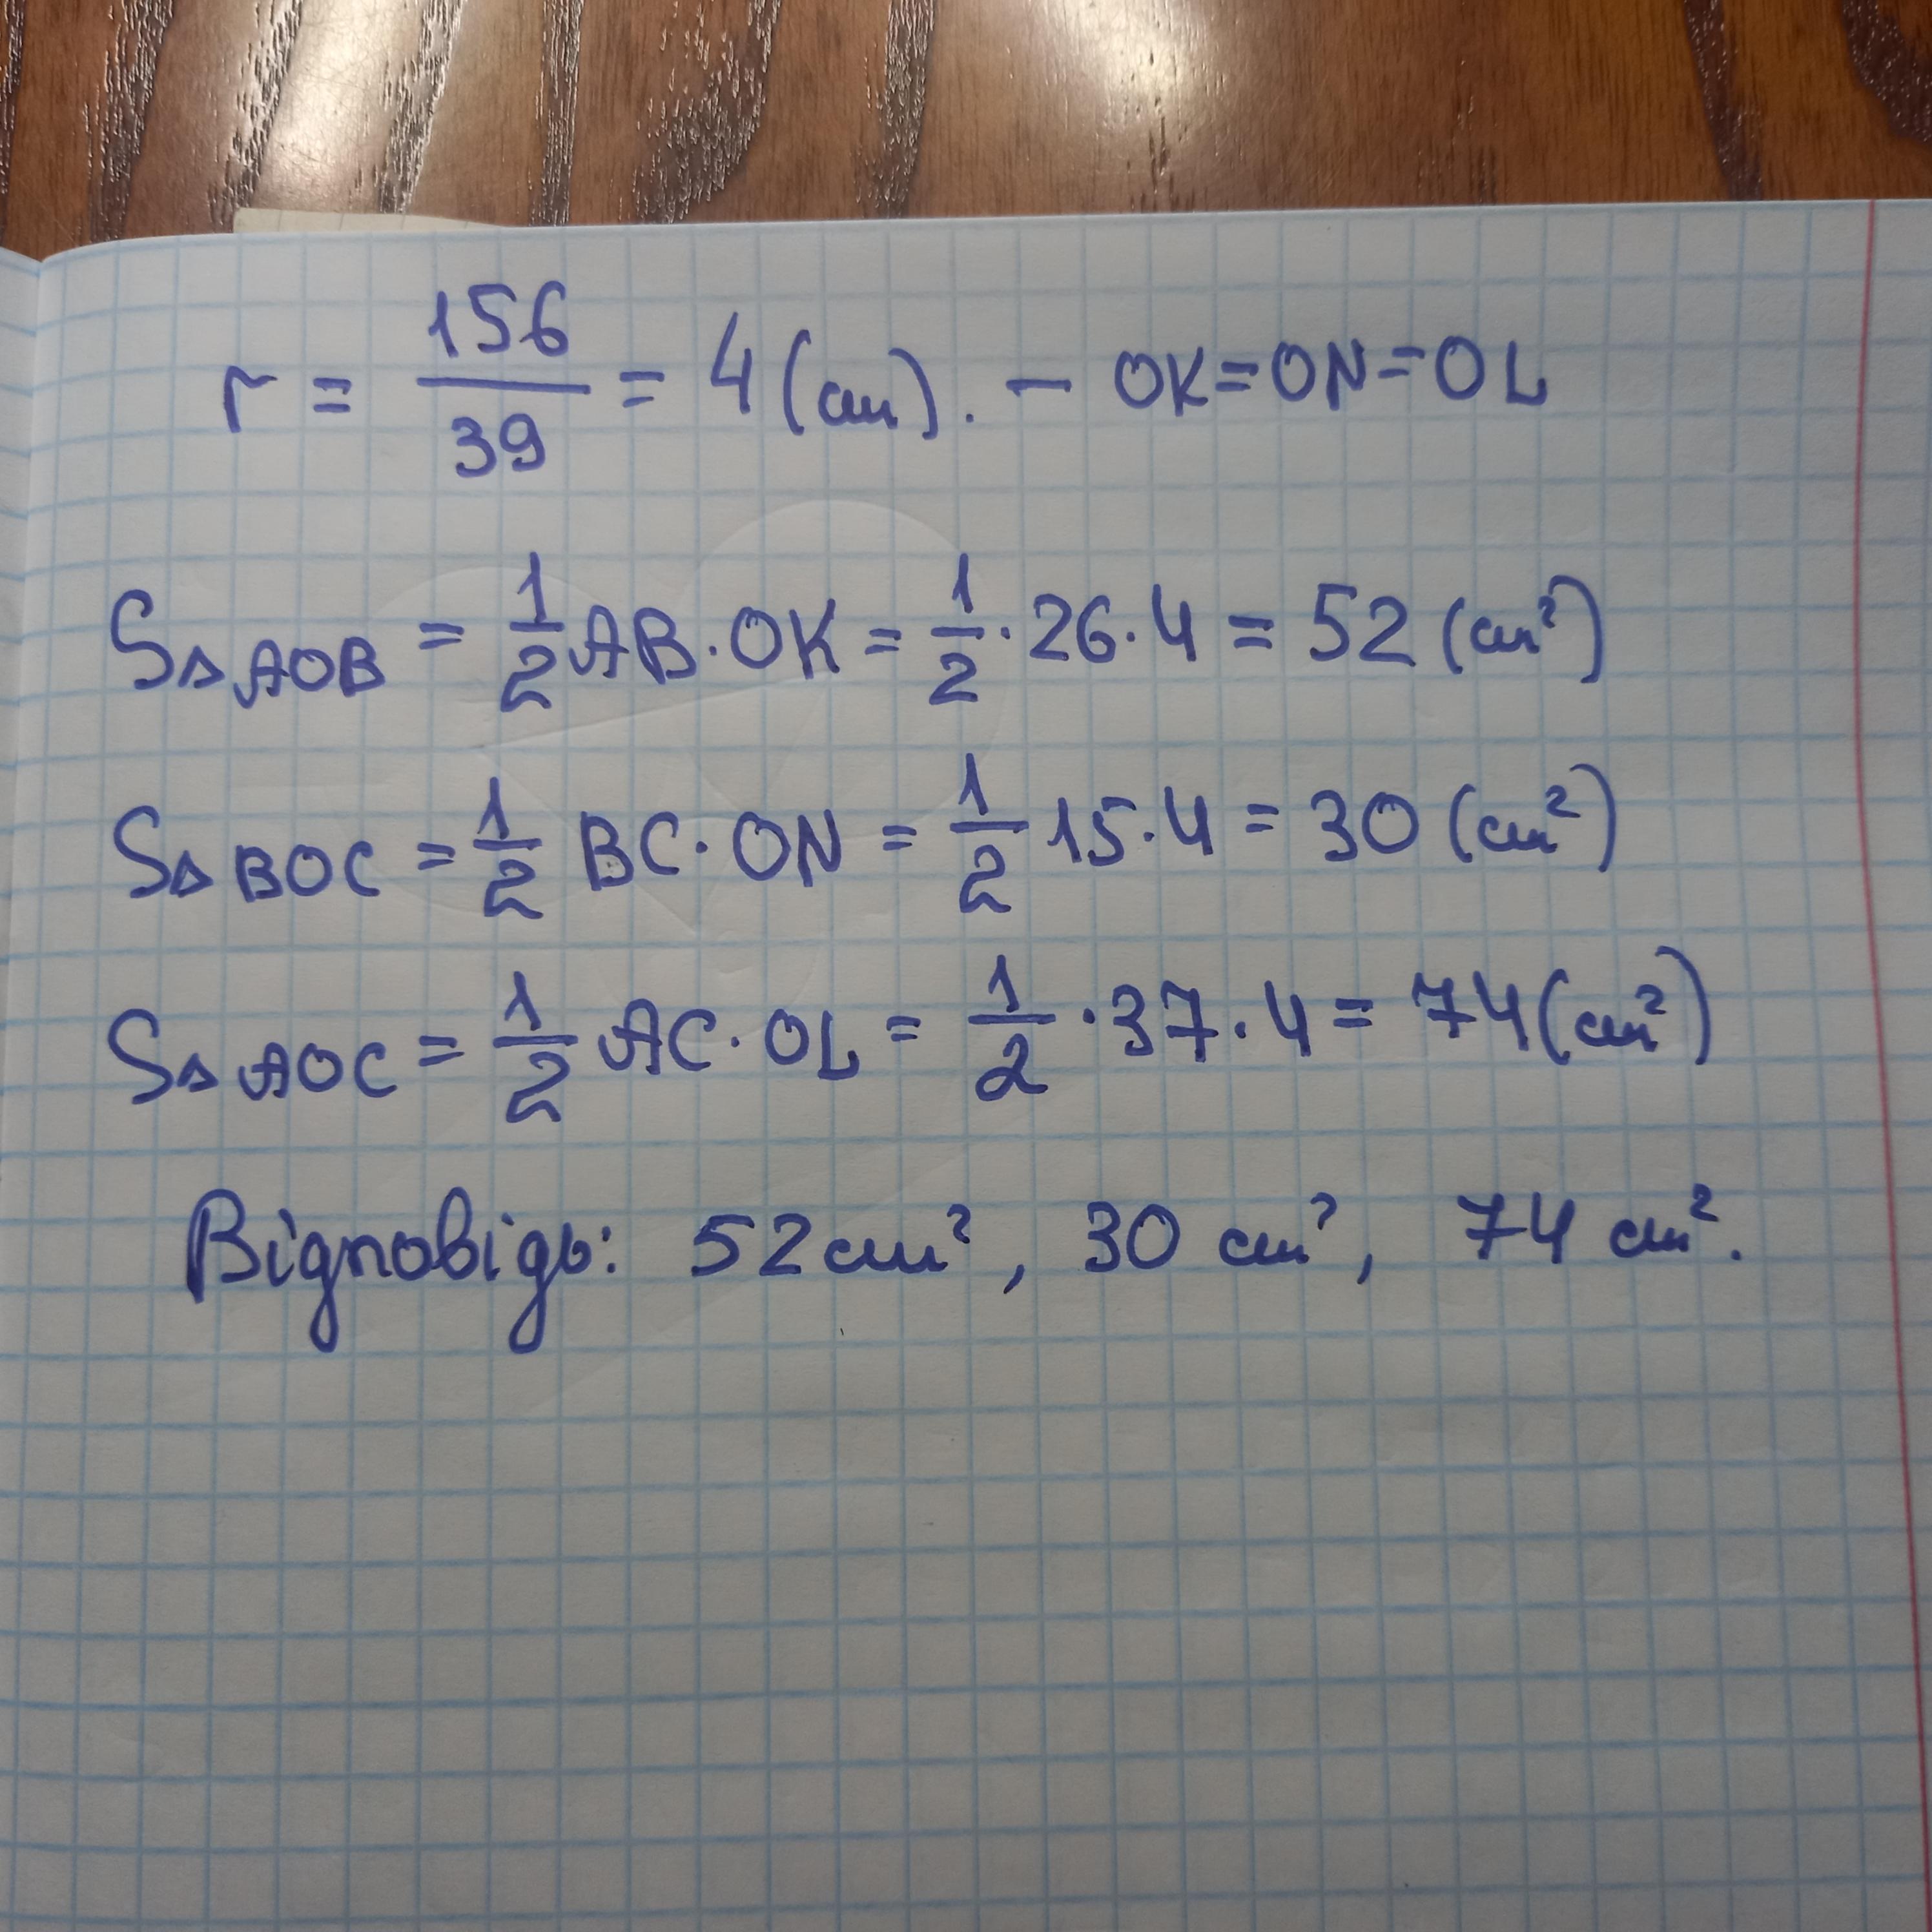 r = 156/39 = 4 (см). – OK=ON=OL
S△AOB = 1/2 AB·OK = 1/2·26·4 = 52 (см²)
S△BOC = 1/2 BC·ON = 1/2 15·4 = 30 (см²)
S△AOC = 1/2 AC·OL = 1/2·37·4 = 74 (см²)
Відповідь: 52 см², 30 см², 74 см².